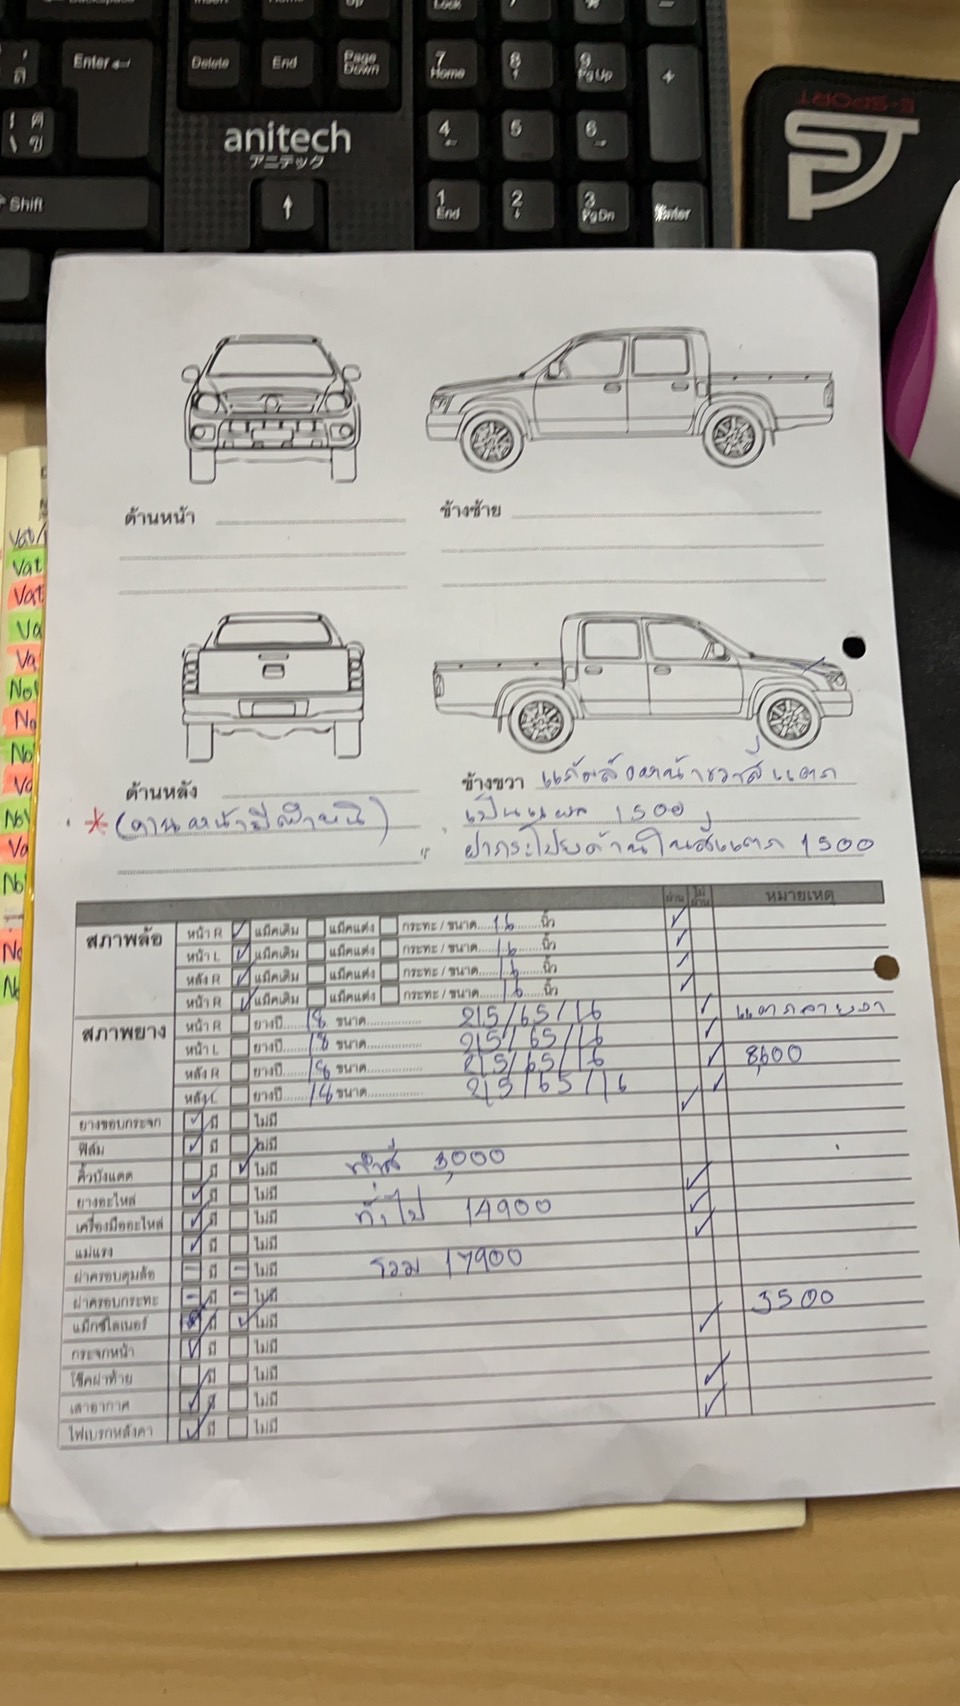 Enter
Delete
End
Page Down
7 Home
8
9 PgUp
+
anitech
アニテック
4
5
6
Shift
1 End
2
3 PgDn
Enter
E-SPORT
ด้านหน้า
ข้างซ้าย
Vat
Vat
Va
Va
No
No
No
Va
No
Va
No
No
No
ด้านหลัง
ข้างขวา แก้มล้อหน้าขวาสีแตก
เป็นแผล 1500
ฝากระโปรงด้านในสีแตก 1500
ผ่าน ไม่ผ่าน หมายเหตุ
สภาพล้อ หน้า R แม็คเดิม แม็คแต่ง กระทะ / ขนาด 16 นิ้ว
หน้า L แม็คเดิม แม็คแต่ง กระทะ / ขนาด 16 นิ้ว
หลัง R แม็คเดิม แม็คแต่ง กระทะ / ขนาด 16 นิ้ว
หน้า R แม็คเดิม แม็คแต่ง กระทะ / ขนาด 16 นิ้ว
สภาพยาง หน้า R ยางปี 18 ขนาด 215/65/16 แตกลายงา
หน้า L ยางปี 18 ขนาด 215/65/16
หลัง R ยางปี 18 ขนาด 215/65/16 8,600
หลัง L ยางปี 18 ขนาด 215/65/16
ยางขอบกระจก มี ไม่มี
ฟิล์ม มี ไม่มี
คิ้วบังแดด มี ไม่มี ทำสี 3,000
ยางอะไหล่ มี ไม่มี
เครื่องมืออะไหล่ มี ไม่มี ทั่วไป 14900
แม่แรง มี ไม่มี
ฝาครอบดุมล้อ มี ไม่มี รวม 17900
ฝาครอบกระทะ มี ไม่มี
แม็กซ์ไลเนอร์ มี ไม่มี 3500
กระจกหน้า มี ไม่มี
โช๊คฝาท้าย มี ไม่มี
เสาอากาศ มี ไม่มี
ไฟเบรกหลังคา มี ไม่มี